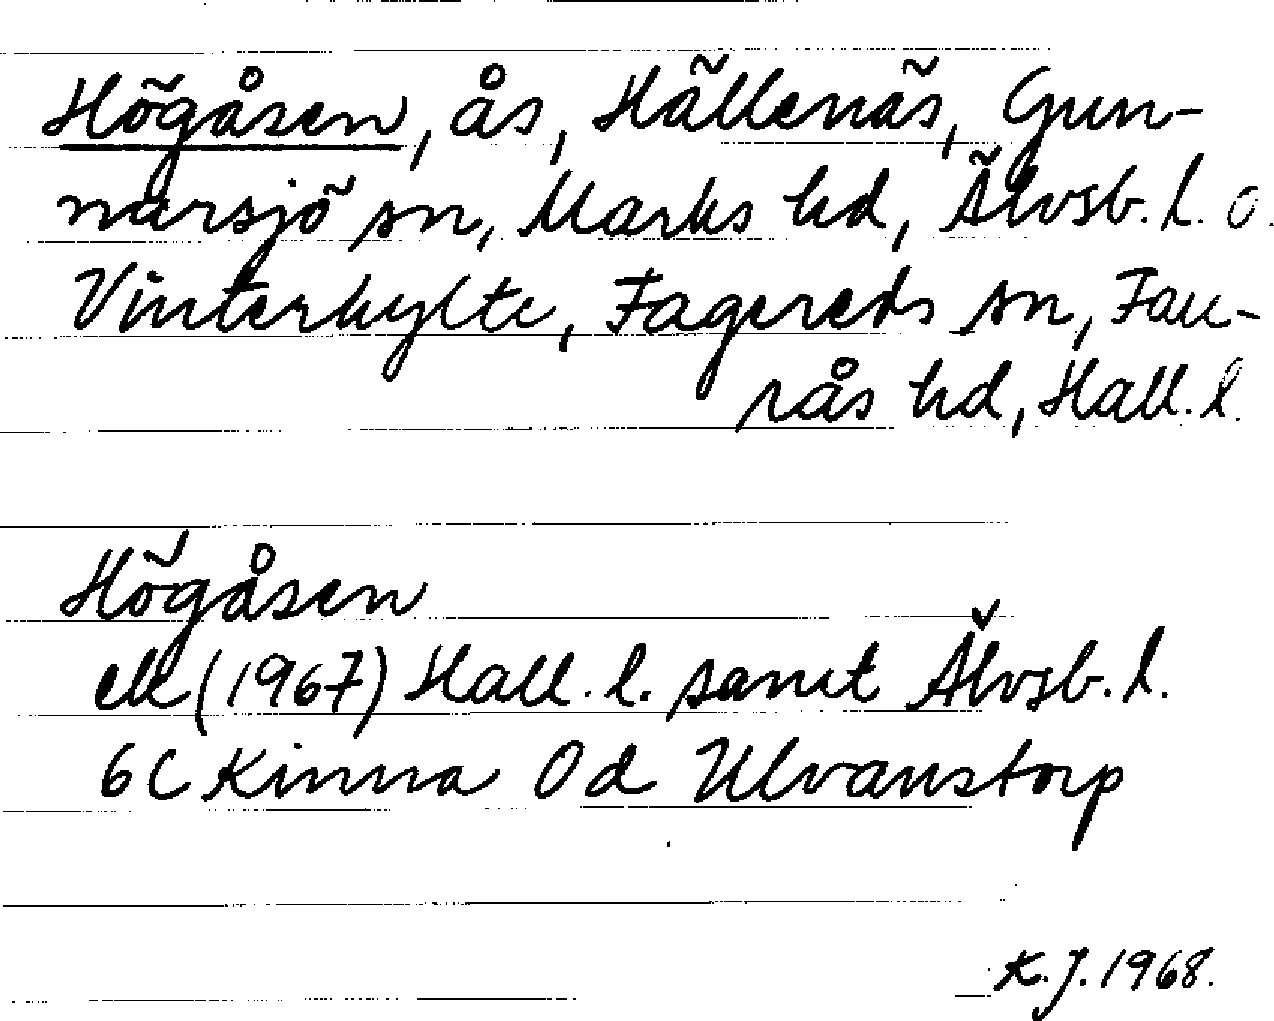 Högåsen, ås, Hällenäs, Gun-
narsjö sn, Marks hd, Älvsb. l. o.
Vinterhylte, Fagereds sn, Fau-
rås hd, Hall. l.
Högåsen
ek (1967) Hall. l. samt Älvsb. l.
6C Kinna 0d Ulvanstorp
K.J. 1968.